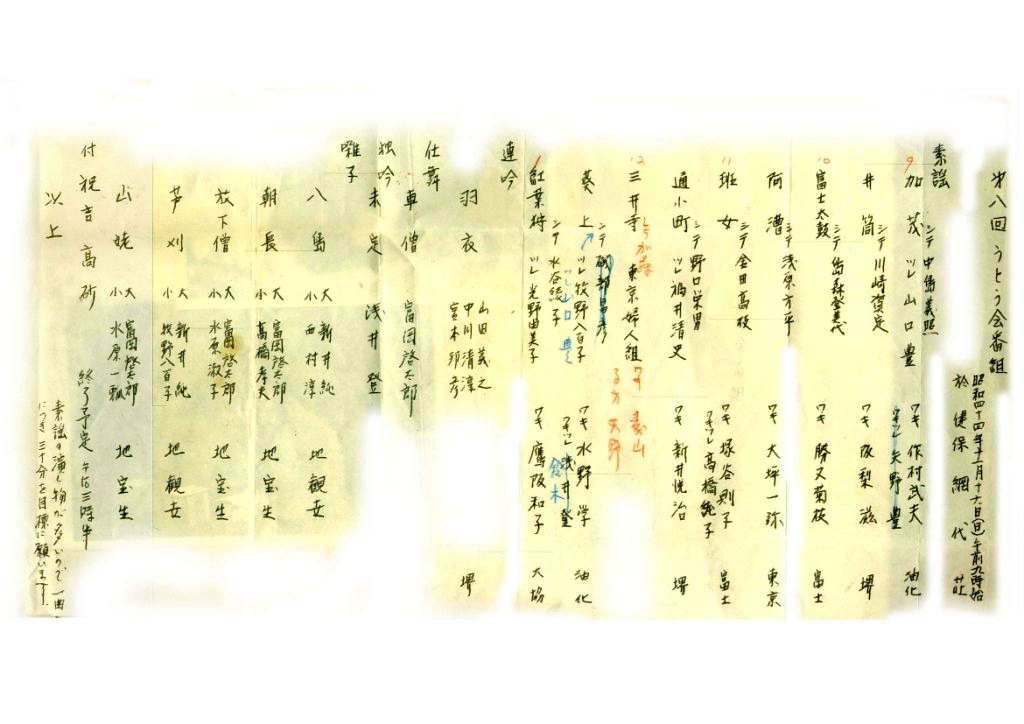 第八回うとう会番組
昭和四十四年十一月十六日(日)午前九時始
於 健保 網代荘
素謡
9 加茂 シテ 中島義照 ツレ 山口豊 ワキ 作村武夫 ワキツレ 矢野豊 油化
井筒 シテ 川崎賀定 ワキ 阪梨滋 堺
10 富士太鼓 シテ 島森登美代 ワキ 勝又菊枝 富士
阿漕 シテ 浅原方平 ワキ 大坪一弥 東京
11 班女 シテ 金田高枝 ワキ 塚谷則子 ワキツレ 高橋純子 富士
通小町 シテ 野口栄男 ツレ 福井清史 ワキ 新井悦治 堺
12 三井寺 東京婦人組
ワキ 遠山
天野
葵上 シテ 磯部昌彦 ツレ 牧野八百子 ワキ 水野学 ワキツレ 浅井登 油化
ツレ 山口豊
鈴木
1 紅葉狩 シテ 水谷綾子 ツレ 光野由美子 ワキ 鷹阪和子 大協
連吟
羽衣 山田義之 中川清淳 宮木邦彦 堺
仕舞
車僧 富岡啓太郎
独吟
未定 浅井登
囃子
八島 大 新井純 小 西村淳 地 観世
朝長 大 富岡啓太郎 小 高橋孝夫 地 宝生
放下僧 大 富岡啓太郎 小 水原淑子 地 宝生
芦刈 大 新井純 小 牧野八百子 地 観世
山姥 大 富岡啓太郎 小 水原一瓢 地 宝生
付祝言 高砂 終了予定 午后三時半
以上
素謡の演し物が多いので一曲
につき三十分を目標に願います。